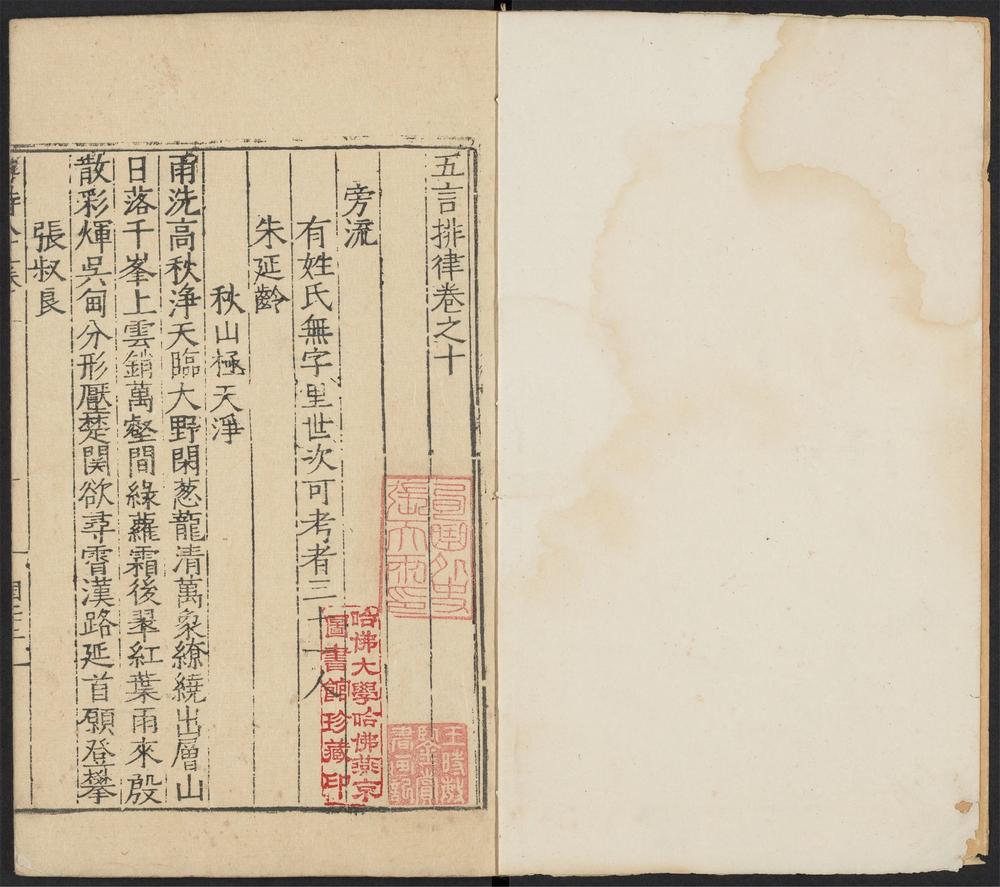 五言排律卷之十
旁流
有姓氏無字里世次可考者三十一人
朱延齡
秋山極天淨
雨洗高秋淨天臨大野閑葱龍清萬象繚繞出層山
日落千峯上雲銷萬壑間綠蘿霜後翠紅葉雨來殷
散彩煇吳甸分形壓楚関欲尋霄漢路延首願登攀
張叔良
哈佛大學哈佛燕京
圖書館珍藏印
王時敏
鑒賞
書画記